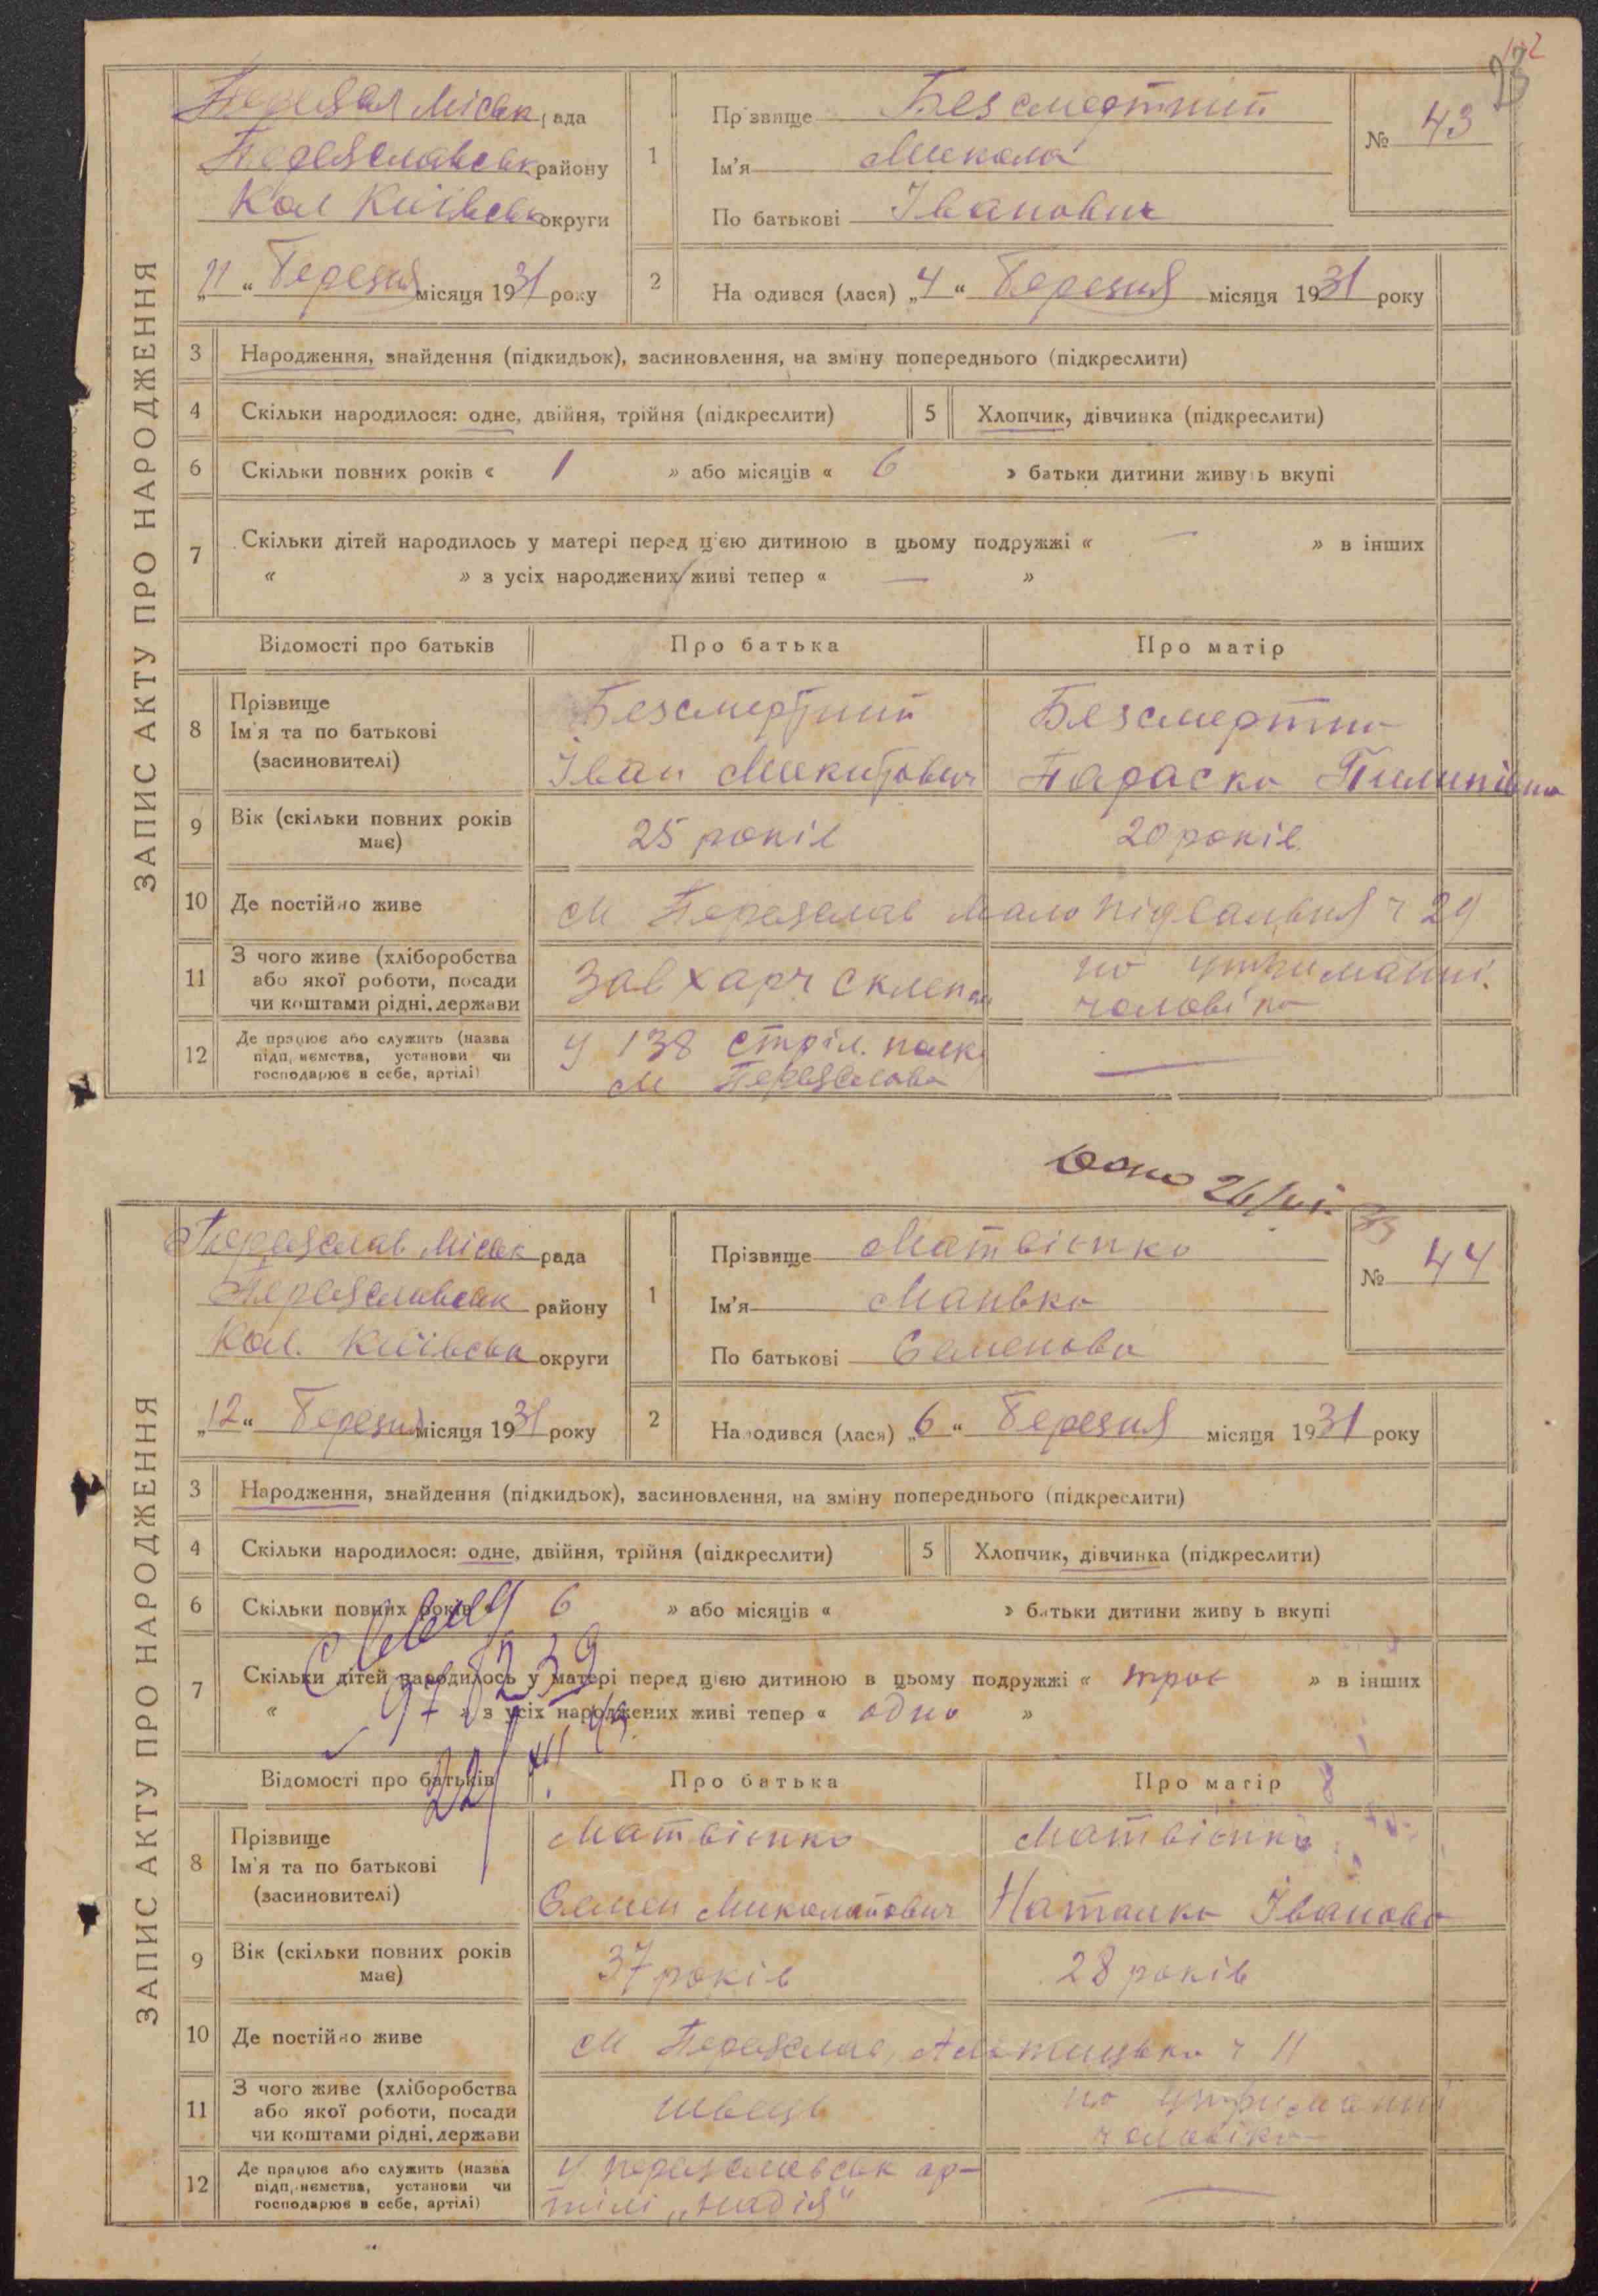 ЗАПИС АКТУ ПРО НАРОДЖЕННЯ
Міськ рада
Переяславськ району
Кол Київськ округи
„11“ Березня місяця 1931 року
1
Прізвище Безсмертний
Ім'я Микола
По батькові Іванович
№ 43
2
Народився (лася) „4“ Березня місяця 1931 року
3 Народження, знайдення (підкидьок), засиновлення, на зміну попереднього (підкреслити)
4 Скільки народилося: одне, двійня, трійня (підкреслити)
5 Хлопчик, дівчинка (підкреслити)
6 Скільки повних років « 1 » або місяців « 6 » батьки дитини живуть вкупі
7 Скільки дітей народилось у матері перед цією дитиною в цьому подружжі « — » в інших
« » з усіх народжених живі тепер « — »
Відомості про батьків Про батька Про матір
8 Прізвище Безсмертний Безсмертна
Ім'я та по батькові
(засиновителі) Іван Микитович Параска Пилипівна
9 Вік (скільки повних років має) 25 років 20 років
10 Де постійно живе м Переяслав Мало Підвальна ч 24
11 З чого живе (хліборобства
або якої роботи, посади
чи коштами рідні, держави
Зав харч склепом
на утриманні
чоловіка
12 Де працює або служить (назва
підприємства, установи чи
господарює в себе, артілі)
У 138 стріл. полку
м Переяслова
—
26/VII
ЗАПИС АКТУ ПРО НАРОДЖЕННЯ
Переяслав Міськ рада
Переяславськ району
Кол. Київська округи
„12“ Березня місяця 1931 року
1
Прізвище Матвієнко
Ім'я Манька
По батькові Семенова
№ 44
2
Народився (лася) „6“ Березня місяця 1931 року
3 Народження, знайдення (підкидьок), засиновлення, на зміну попереднього (підкреслити)
4 Скільки народилося: одне, двійня, трійня (підкреслити)
5 Хлопчик, дівчинка (підкреслити)
6 Скільки повних років « 6 » або місяців « » батьки дитини живуть вкупі
7 Скільки дітей народилось у матері перед цією дитиною в цьому подружжі « троє » в інших
« » з усіх народжених живі тепер « одно »
Відомості про батьків Про батька Про матір
8 Прізвище Матвієнко Матвієнко
Ім'я та по батькові
(засиновителі) Семен Миколайович Наталка Іванова
9 Вік (скільки повних років має) 37 років 28 років
10 Де постійно живе м Переяслав, ч 11
11 З чого живе (хліборобства
або якої роботи, посади
чи коштами рідні, держави
швець
на утриманні
чоловіка
12 Де працює або служить (назва
підприємства, установи чи
господарює в себе, артілі)
У переяславськ ар-
тілі „Надія“
—